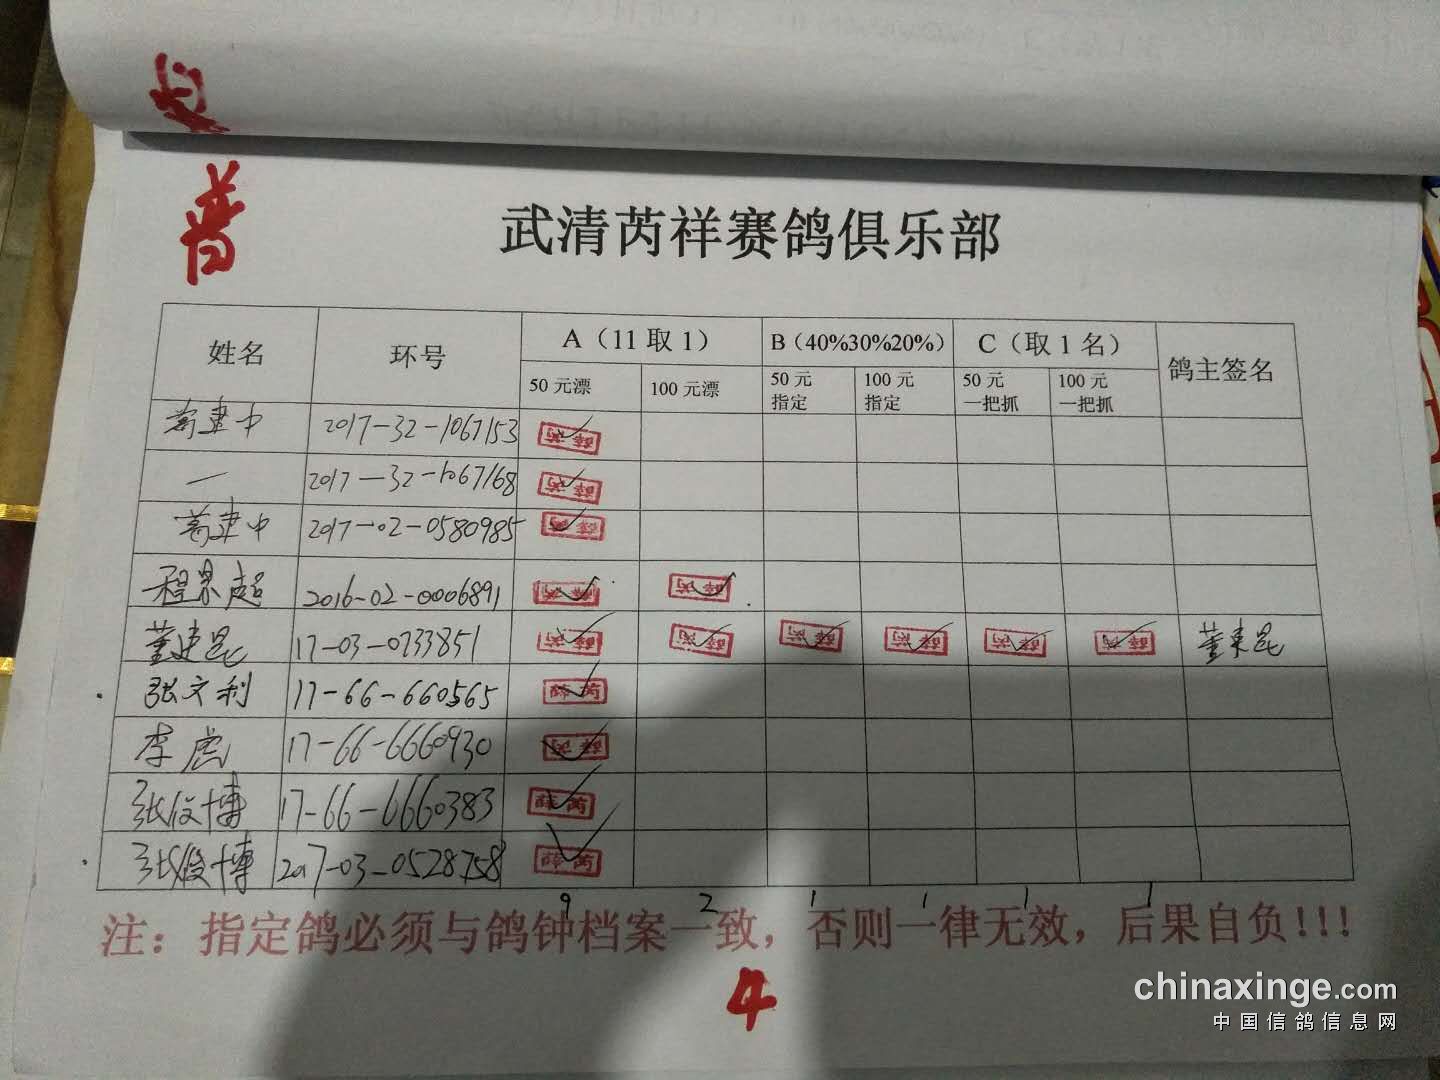 普
武清芮祥赛鸽俱乐部
姓名 环号 A（11取1） B（40%30%20%） C（取1名） 鸽主签名
50元漂 100元漂 50元指定 100元指定 50元一把抓 100元一把抓
2017-32-1067153
一 2017-32-1067168
2017-02-0580985
2016-02-0006891
董建昆 17-03-0733851 董建昆
张文利 17-66-660565
李虎 17-66-6660930
张俊博 17-66-6660383
张俊博 2017-03-0528758
9 2 1 1 1 1
注：指定鸽必须与鸽钟档案一致，否则一律无效，后果自负!!!
4
chinaxinge.com
中国信鸽信息网